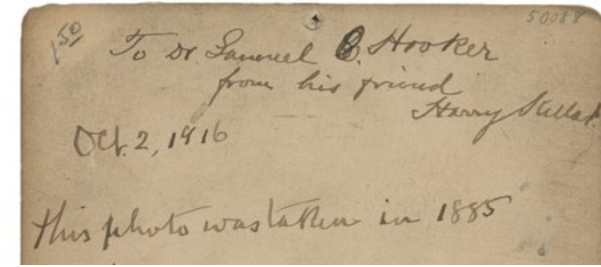 1.50
50088
To Dr Samuel C. Hooker
from his friend
Harry Kellar.
Oct. 2, 1916
this photo was taken in 1885